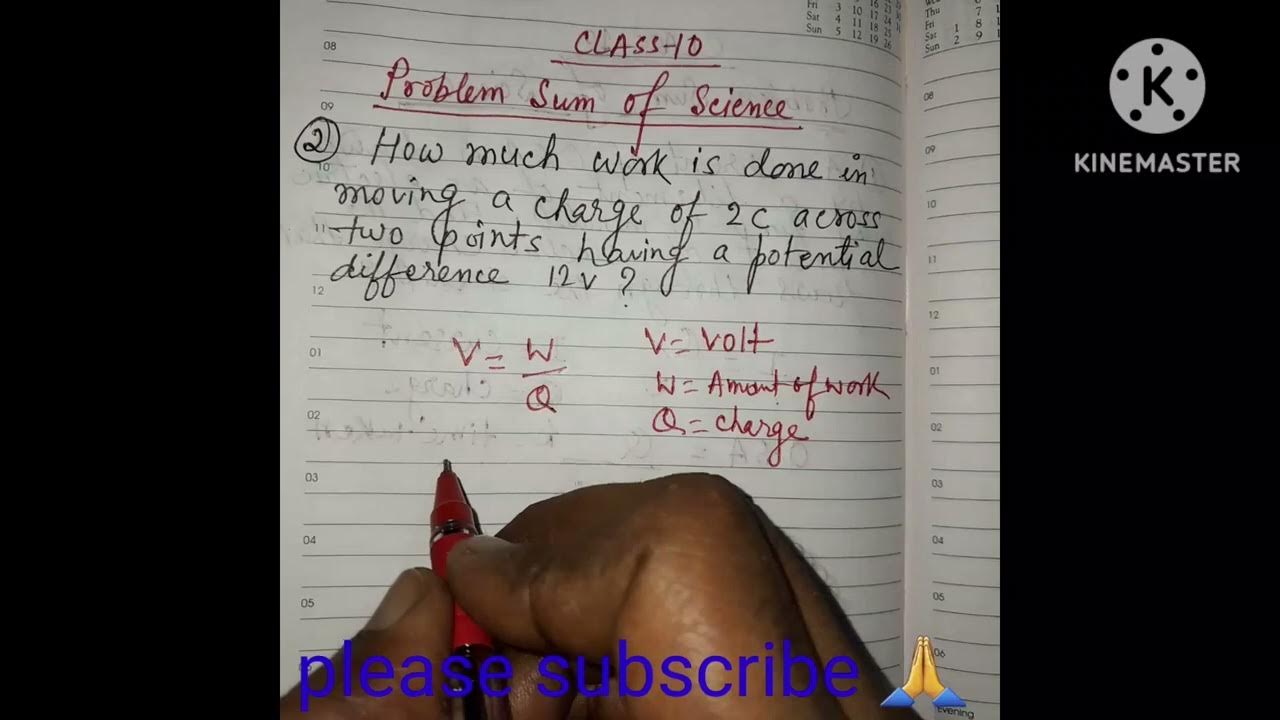 CLASS-10
Problem Sum of Science
2) How much work is done in
moving a charge of 2C across
two points having a potential
difference 12V ?
V = W
Q
V = Volt
W = Amount of work
Q = charge
please subscribe 🙏
K
KINEMASTER
08
09
10
11
12
01
02
03
04
05
Fri 3 10 17 24
Sat 4 11 18 25
Sun 5 12 19 26
Thu 7
Fri 1 8
Sat 2 9
Sun
08
09
10
11
12
01
02
03
04
05
06
Evening